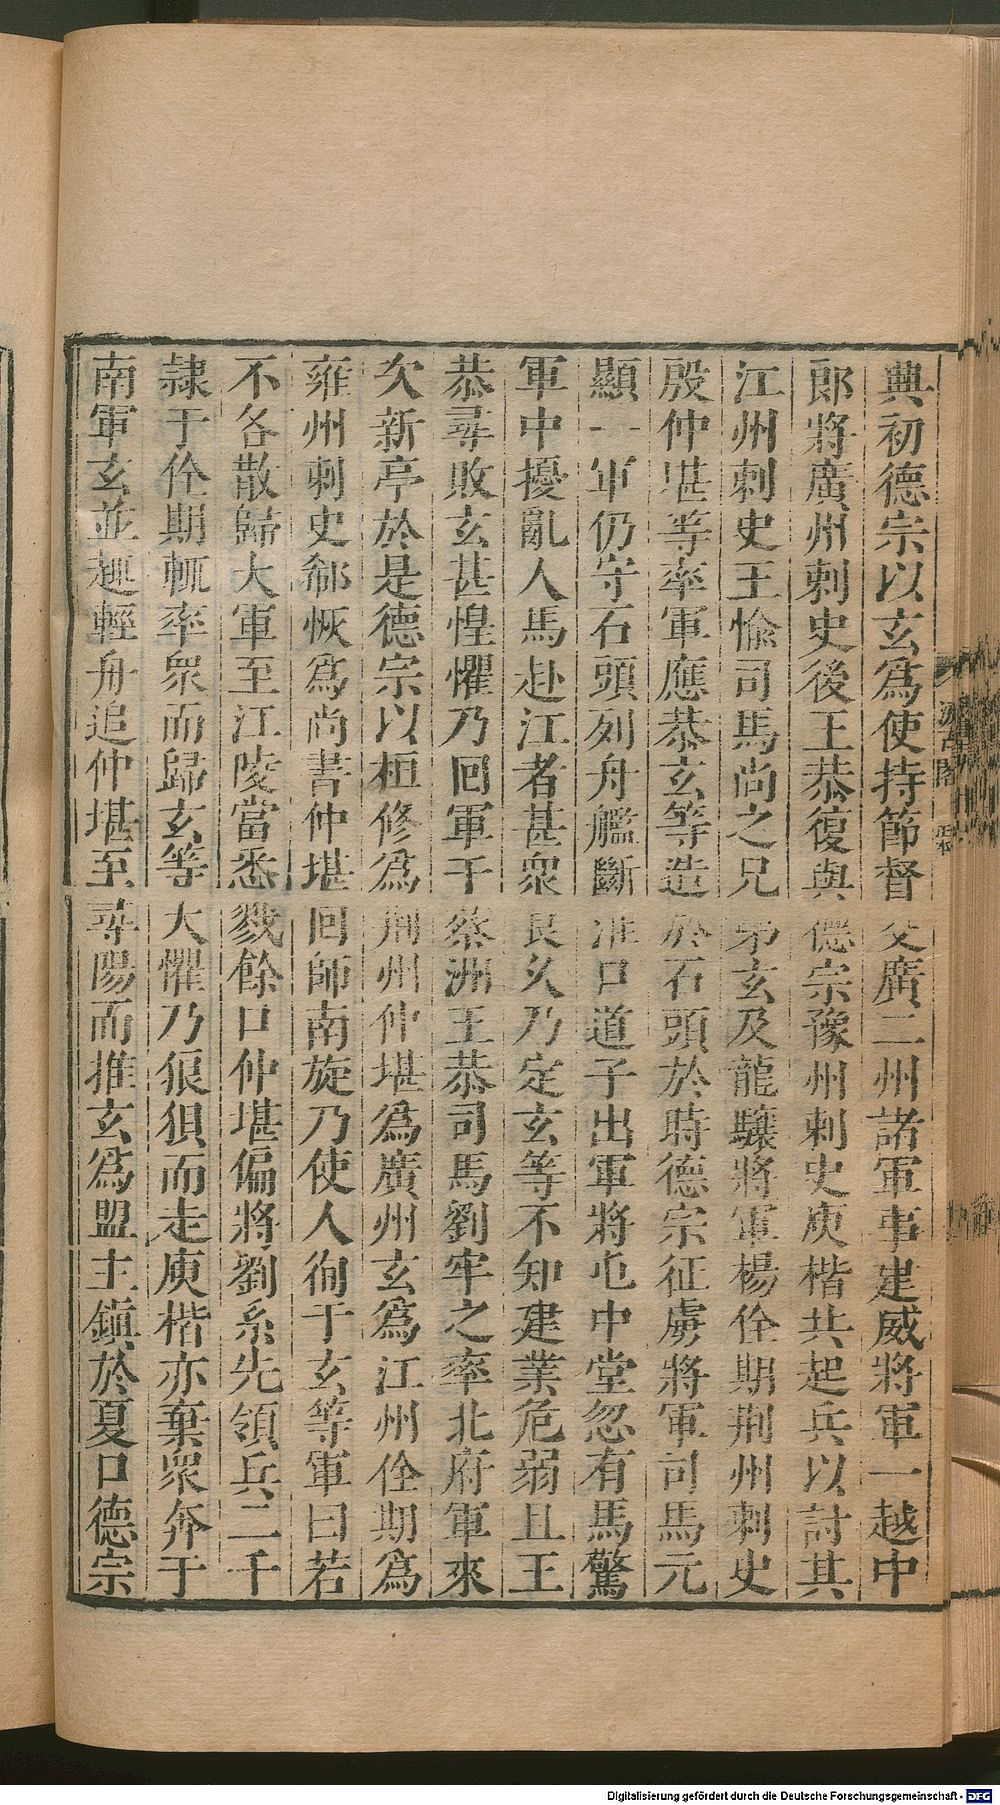 典初德宗以玄為使持節督交廣二州諸軍事建威將軍一越中
郎將廣州刺史後王恭復與德宗豫州刺史庾楷共起兵以討其
江州刺史王愉司馬尚之兄弟玄及龍驤將軍楊佺期荆州刺史
殷仲堪等率軍應恭玄等造於石頭於時德宗征虜將軍司馬元
顯一軍仍守石頭列舟艦斷淮口道子出軍將屯中堂忽有馬驚
軍中擾亂人馬赴江者甚衆良久乃定玄等不知建業危弱且王
恭尋敗玄甚惶懼乃回軍于蔡洲王恭司馬劉牢之率北府軍來
次新亭於是德宗以桓修為荆州仲堪為廣州玄為江州佺期為
雍州刺史郗恢為尚書仲堪回師南旋乃使人徇于玄等軍曰若
不各散歸大軍至江陵當悉戮餘口仲堪偏將劉系先領兵二千
隷于佺期輒率衆而歸玄等大懼乃狼狽而走庾楷亦棄衆奔于
南軍玄並趣輕舟追仲堪至尋陽而推玄為盟主鎮於夏口德宗
汲古閣
Digitalisierung gefördert durch die Deutsche Forschungsgemeinschaft - DFG